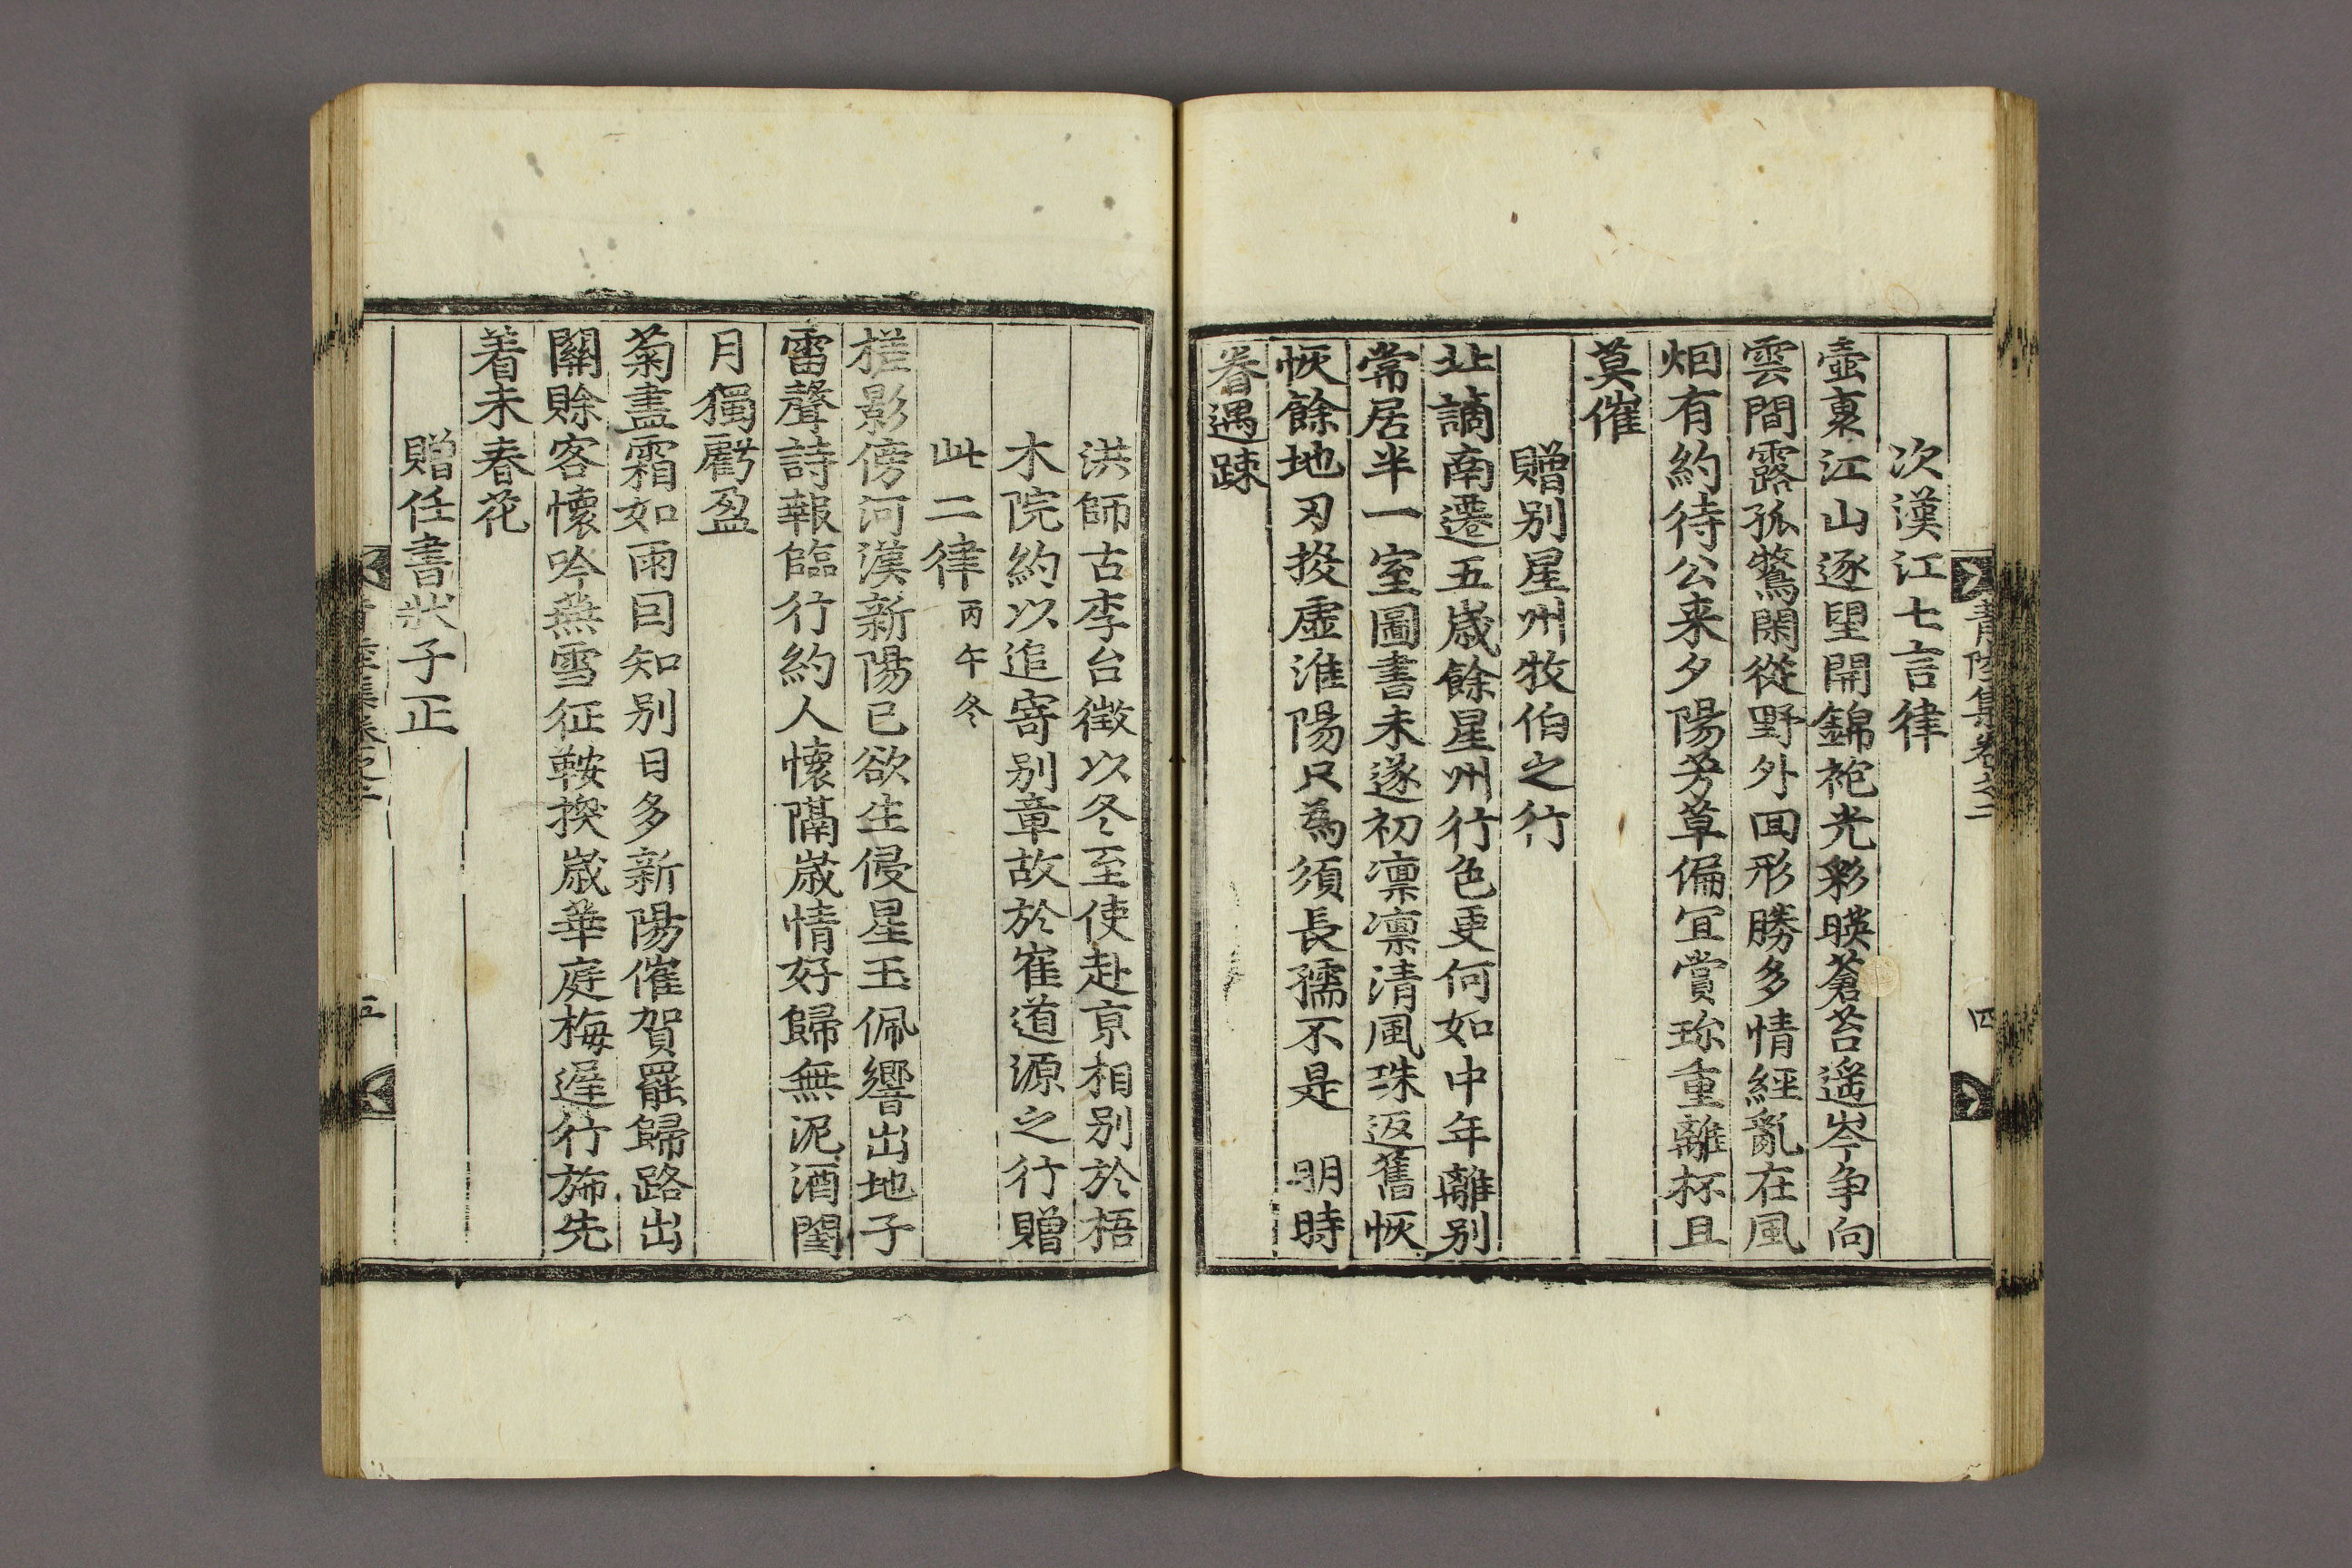 青陸集卷之二
四
次漢江七言律
壺裏江山逐望開錦袍光彩暎蒼苔遥岑争向
雲間露孤鶩閑從野外回形勝多情經亂在風
烟有約待公来夕陽芳草偏宜賞珎重離杯且
莫催
贈别星州牧伯之行
北謫南遷五歲餘星州行色更何如中年離别
常居半一室圖書未遂初凛凛清風珠返舊恢
恢餘地刃投虚淮陽只為須長孺不是　明時
眷遇踈
洪師古李台徵以冬至使赴京相别於梧
木院約以追寄别章故於崔道源之行贈
此二律丙午冬
槎影傍河漢新陽已欲生侵星玉佩響出地子
雷聲詩報臨行約人懷隔歲情好歸無泥酒閨
月獨虧盈
菊盡霜如雨囙知别日多新陽催賀罷歸路出
關賒客懷吟燕雪征鞍揆歲華庭梅遲行旆先
着未春花
贈任書狀子正
集卷之二
五